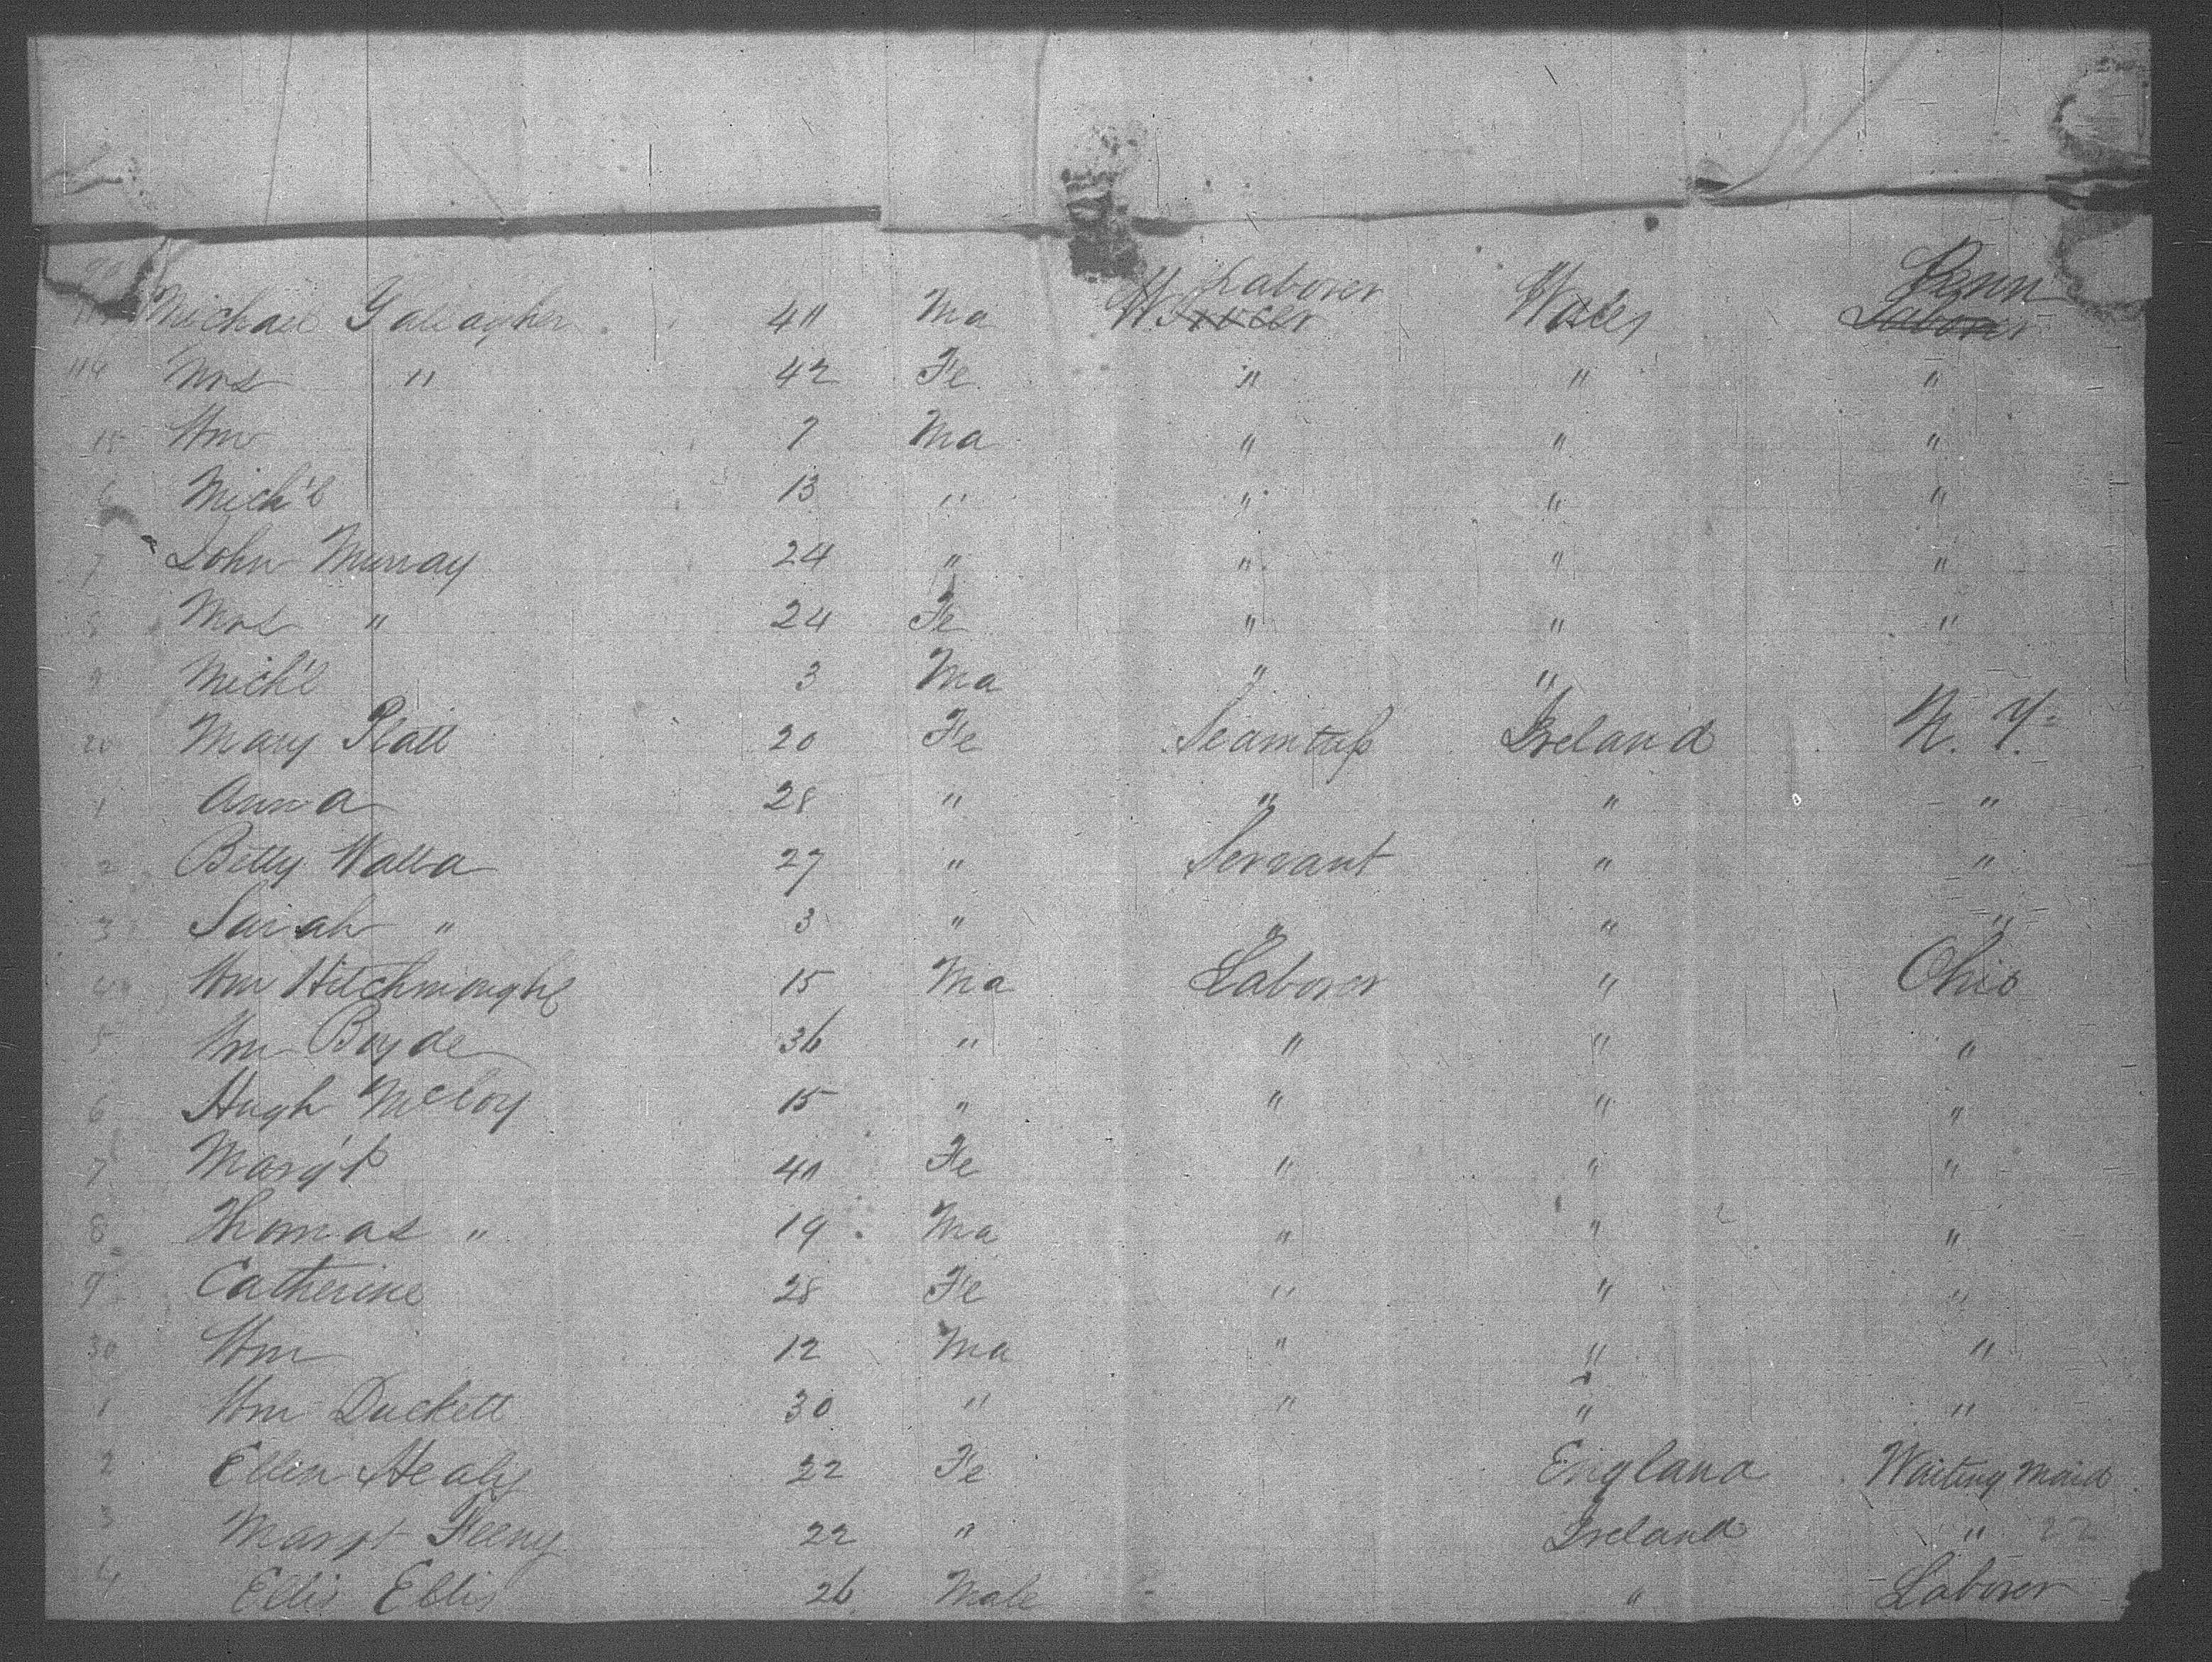 Michael Gallagher 40 Ma Laborer Wales Penn
114 Mrs " 42 Fe " " "
15 Wm 7 Ma " " "
6 Mich'l 13 " " " "
7 John Murray 24 " " " "
8 Mrs " 24 Fe " " "
9 Mich'l 3 Ma " "
20 Mary Platt 20 Fe Seamtress Ireland N. Y.
1 Anna 28 " " " "
2 Betty Walba 27 " Servant " "
3 Sarah " 3 " " " "
4 Wm 15 Ma Laborer " Ohio
5 Wm Boyde 36 " " " "
6 Hugh McCloy 15 " " " "
7 Marg't 40 Fe " " "
8 Thomas " 19 Ma " " "
9 Catherine 28 Fe " " "
30 Wm 12 Ma " " "
1 Wm Duckett 30 " " " "
2 Ellen Healy 22 Fe England Waiting Maid
3 Margt Feeny 22 " Ireland " 22
4 Ellis Ellis 26 Male " Laborer